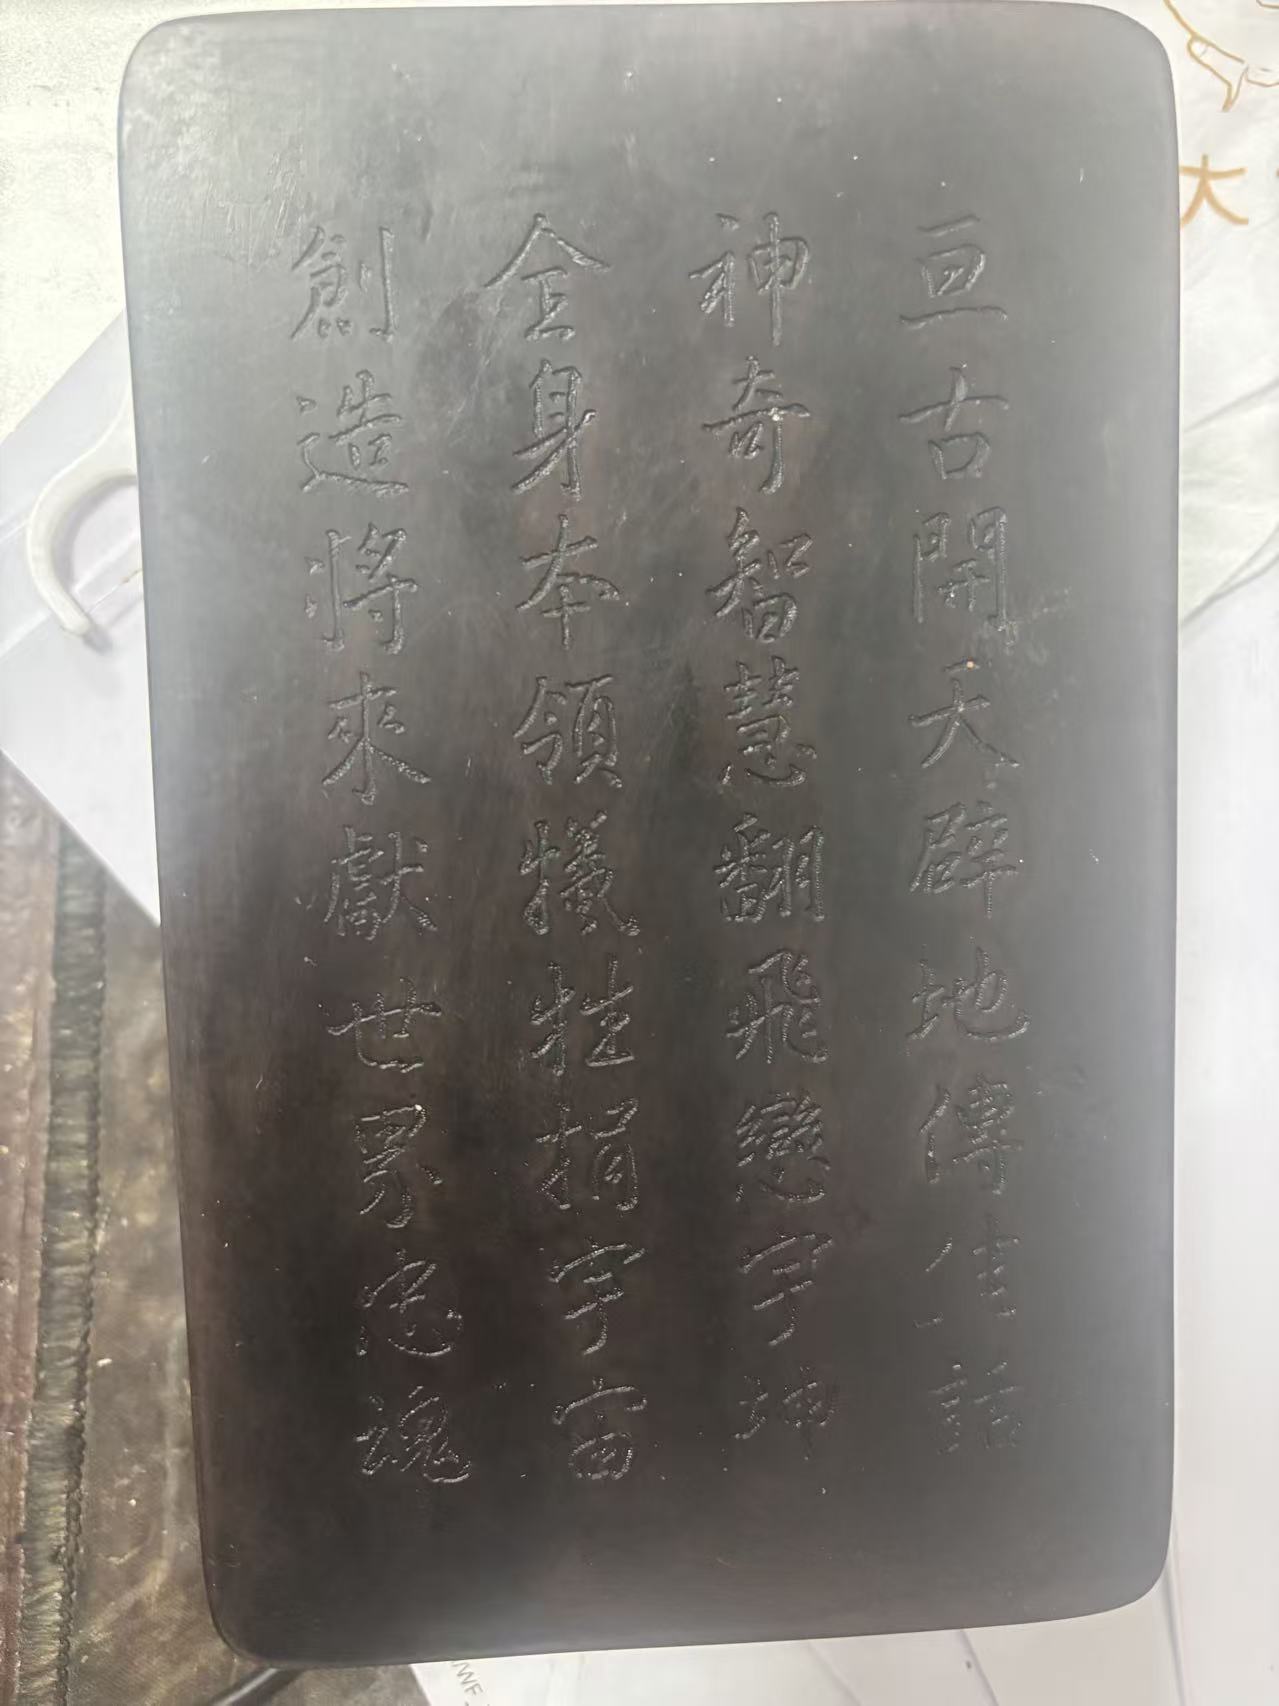 亘古開天辟地傳佳話
神奇智慧翻飛戀宇坤
全身本領犠牲捐宇宙
創造將來獻世界忠魂
大